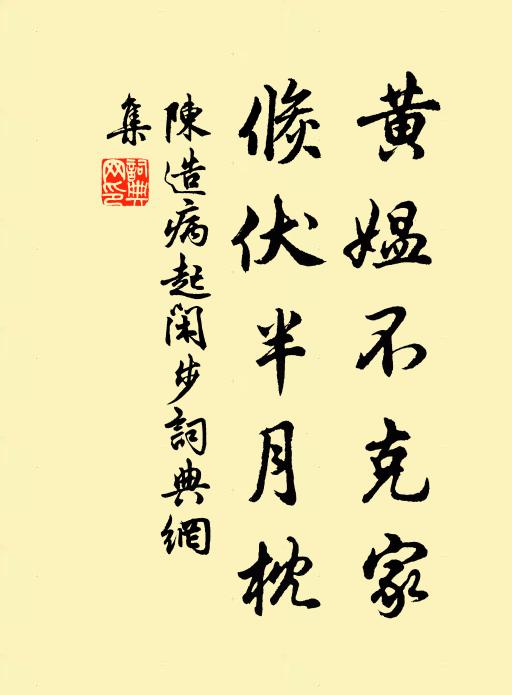 黄媪不克家
倐伏半月枕
陳造病起閑步詞典網
集
詞典網印